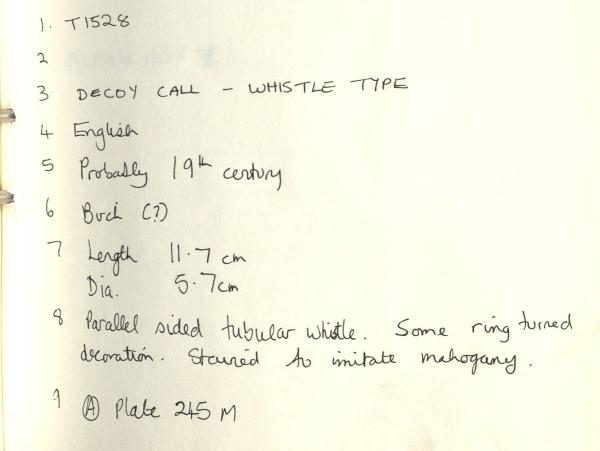 1. T1528
2
3 DECOY CALL - WHISTLE TYPE
4 English
5 Probably 19th century
6 Birch (?)
7 Length 11.7 cm
Dia. 5.7cm
8 Parallel sided tubular whistle. Some ring turned
decoration. Stained to imitate mahogany.
9 (A) Plate 245 M